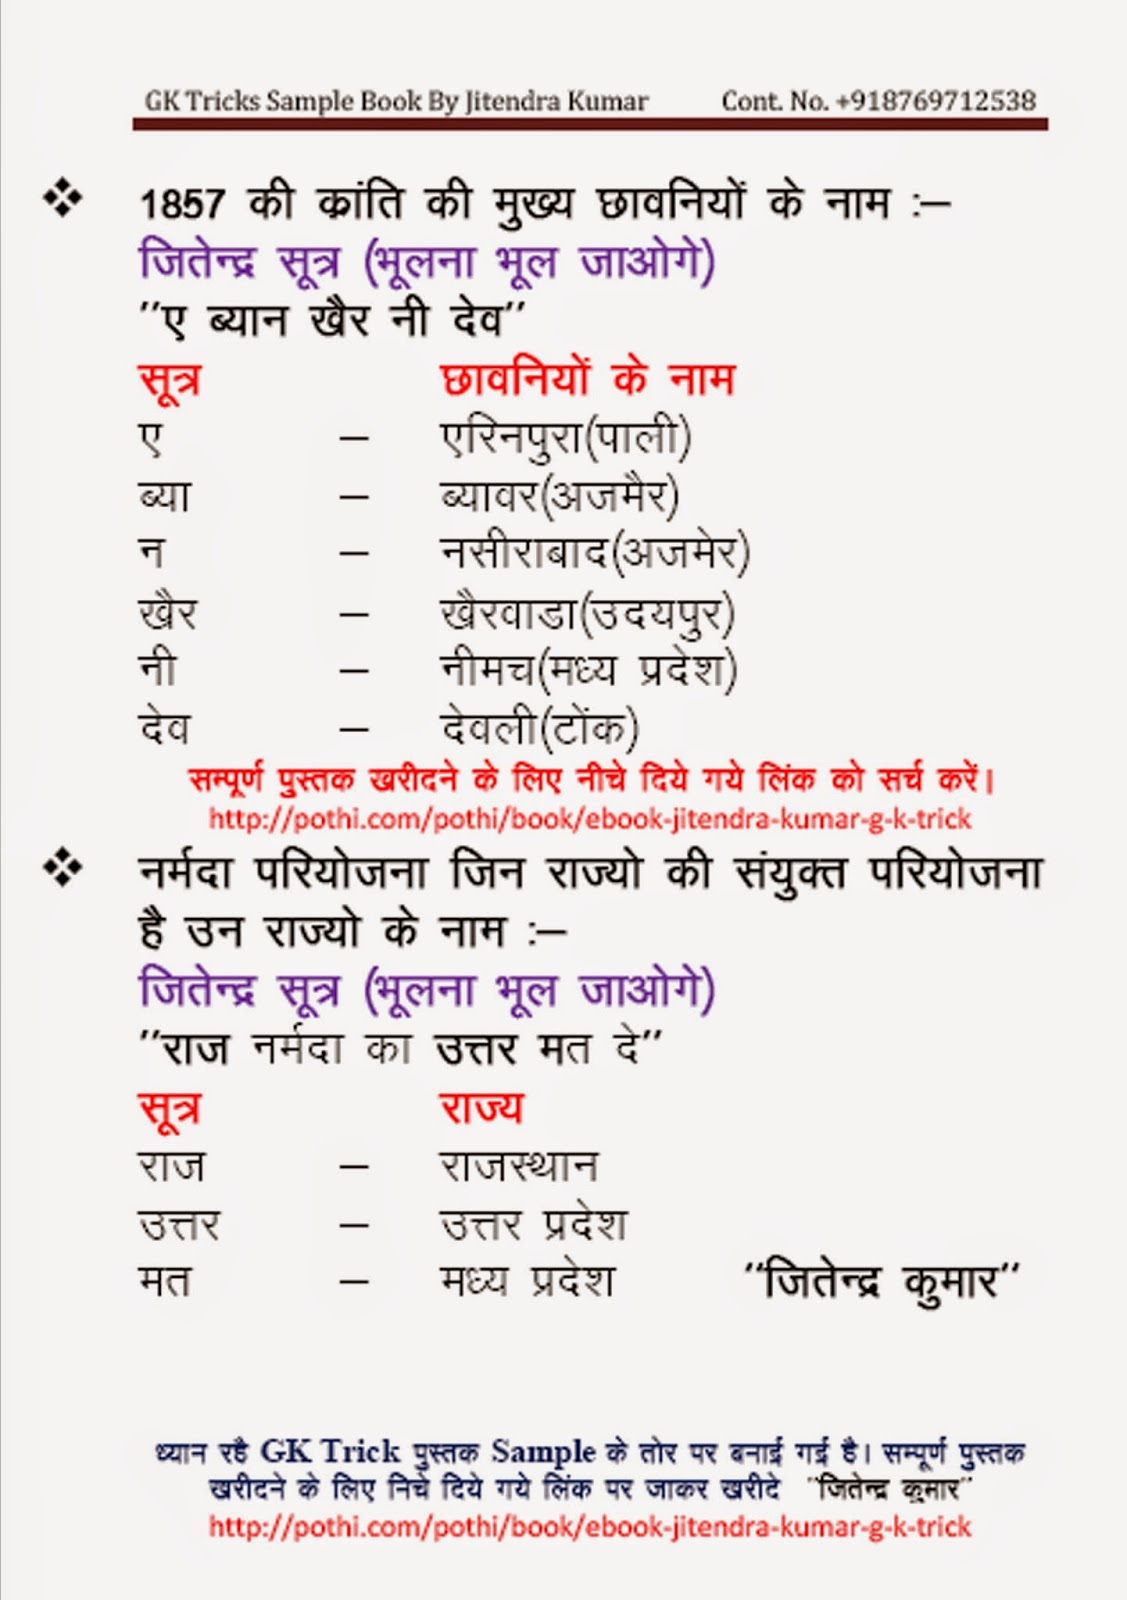 GK Tricks Sample Book By Jitendra Kumar Cont. No. +918769712538
❖ 1857 की क्रांति की मुख्य छावनियों के नाम :–
जितेन्द्र सूत्र (भूलना भूल जाओगे)
"ए ब्यान खैर नी देव"
सूत्र छावनियों के नाम
ए – एरिनपुरा(पाली)
ब्या – ब्यावर(अजमैर)
न – नसीराबाद(अजमेर)
खैर – खैरवाडा(उदयपुर)
नी – नीमच(मध्य प्रदेश)
देव – देवली(टोंक)
सम्पूर्ण पुस्तक खरीदने के लिए नीचे दिये गये लिंक को सर्च करें।
http://pothi.com/pothi/book/ebook-jitendra-kumar-g-k-trick
❖ नर्मदा परियोजना जिन राज्यो की संयुक्त परियोजना
है उन राज्यो के नाम :–
जितेन्द्र सूत्र (भूलना भूल जाओगे)
"राज नर्मदा का उत्तर मत दे"
सूत्र राज्य
राज – राजस्थान
उत्तर – उत्तर प्रदेश
मत – मध्य प्रदेश "जितेन्द्र कुमार"
ध्यान रहै GK Trick पुस्तक Sample के तोर पर बनाई गई है। सम्पूर्ण पुस्तक
खरीदने के लिए निचे दिये गये लिंक पर जाकर खरीदे "जितेन्द्र कुमार"
http://pothi.com/pothi/book/ebook-jitendra-kumar-g-k-trick